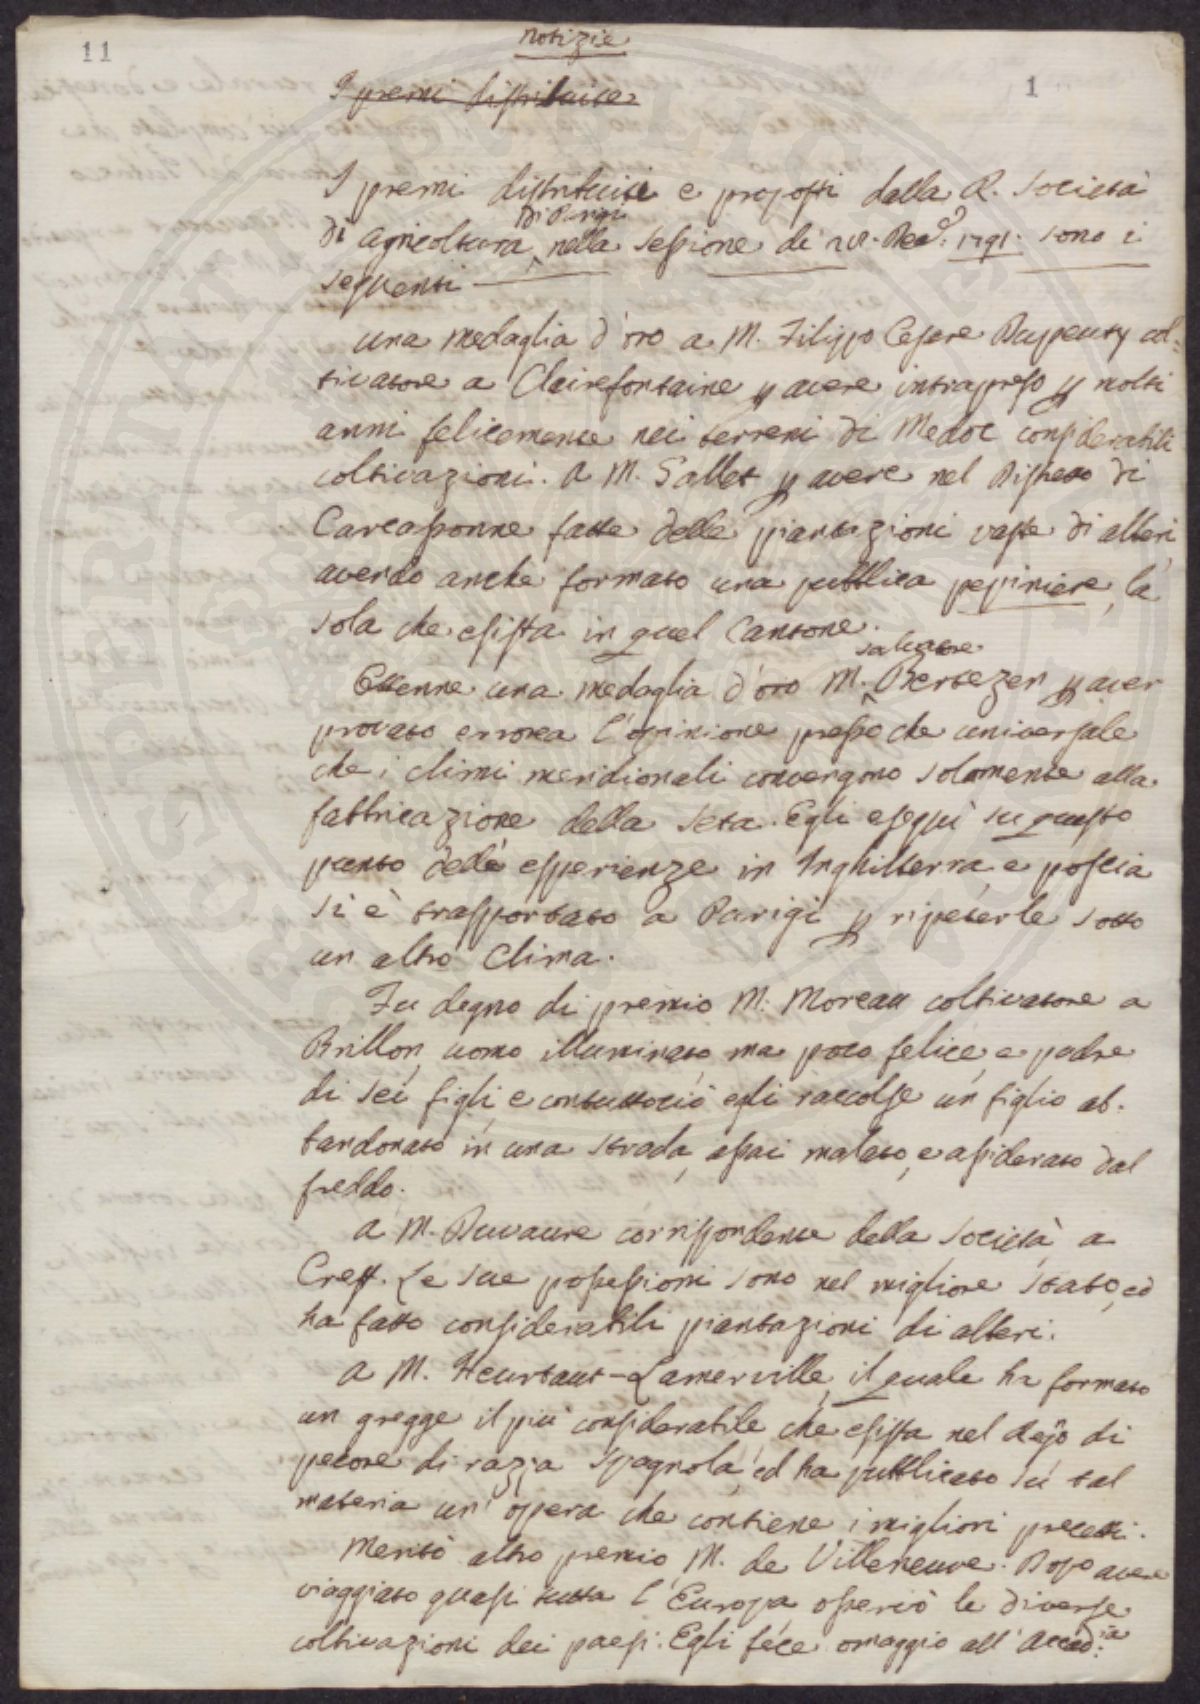 11
notizie
1
I premi distribuiti
I premi distribuiti e proposti dalla R. Società
di Parigi
di agricoltura nella sessione de 28. Dec. 1791. sono i
seguenti
una medaglia d'oro a M. Filippo Cesare Dupeuty col=
tivatore a Clairefontaine p avere intrapreso p molti
anni felicemente nei terreni di Medoc considerabili
coltivazioni. a M. Sallet p avere nel Distretto di
Carcassonne fatte delle piantazioni vaste di alberi,
avendo anche formato una pubblica pepiniere, la
sola che esista in quel Cantone.
salvatore
Ottenne una medaglia d'oro M. Bertezen p aver
provato erronea l'opinione pressoche universale
che i climi meridionali convergono solamente alla
fabbricazione della seta. Egli eseguì su questo
punto delle esperienze in Inghilterra, e poscia
si è trasportato a Parigi p ripeterle sotto
un altro clima.
Fu degno di premio M. Moreau coltivatore a
Brillon, uomo illuminato, ma poco felice, e padre
di sei figli, e contuttociò egli raccolse un figlio ab.
bandonato in una strada, assai malato, e assiderato dal
freddo.
a M. Duvaure corrispondente della Società a
Crest. Le sue possessioni sono nel migliore stato, ed
ha fatto considerabili piantazioni di alberi.
a M. Heurtaut-Lamerville, il quale ha formato
un gregge il più considerabile che esista nel Regno di
pecore di razza spagnola, ed ha pubblicato su tal
materia un' opera che contiene i migliori precetti.
Meritò altro premio M. de Villeneuve. Dopo avere
viaggiato quasi tutta l' Europa osservò le diverse
coltivazioni dei paesi. Egli fece omaggio all' Accad.ia